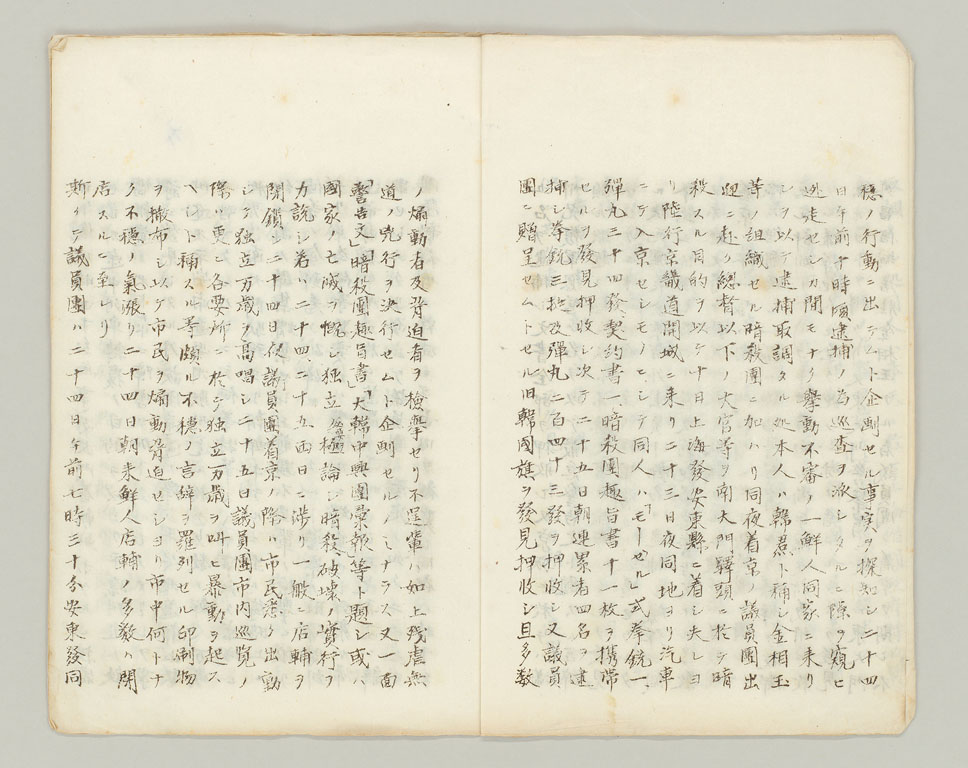 穏ノ行動ニ出テムト企劃セル事実ヲ探知シ二十四
日午前十時頃逮捕ノ為巡査ヲ派シタルニ隙ヲ窺ヒ
逃走セシカ間モナク擧動不審ノ一鮮人同家ニ来リ
シヲ以テ逮捕取調タルニ本人ハ韓君ト稱シ金相玉
等ノ組織セル暗殺團ニ加ハリ同夜着京ノ議員團出
迎ニ赴ク總督以下ノ大官等ヲ南大門驛頭ニ於テ暗
殺スル目的ヲ以テ十日上海發安東縣ニ着シ夫レヨ
リ陸行京議道開城ニ来リ二十三日夜同地ヨリ汽車
ニテ入京セシモノニシテ同人ハ「モーゼル」式拳銃一、
彈丸三十四發、契約書一暗殺團趣旨書十一枚ヲ携帶
セルヲ發見押收シ次テ二十五日朝連累者四名ヲ逮
捕シ拳銃三挺及彈丸二百四十三發ヲ押收シ又議員
團ニ贈呈セムトセル旧韓國旗ヲ發見押收シ且多数
ノ煽動者及脅迫者ヲ検擧セリ不逞輩ハ如上残虐無
道ノ兇行ヲ決行セムト企劃セルノミナラス又一面
「警告文」「暗殺團趣旨書」「大韓中興團彙報」等ト題シ或ハ
國家ノ亡滅ヲ慨シ独立ヲ極論シ暗殺、破壊ノ實行ヲ
力説シ若ハ二十四、二十五両日ニ渉リ一般ニ店輔ヲ
閉鎖シ二十四日夜議員團着京ノ際ハ市民悉ク出動
シテ独立万歳ヲ高唱シ二十五日議員團市内巡覧ノ
際ハ更ニ各要所ニ於テ独立万歳ヲ叫ヒ暴動ヲ起ス
ヘシト稱スル等頗ル不穏ノ言辭ヲ羅列セル印刷物
ヲ撒布シ以テ市民ヲ煽動脅迫セシヨリ市中何トナ
ク不穏ノ氣漲リ二十四日朝来鮮人店輔ノ多数ハ閉
店スルニ至レリ
斯クテ議員團ハ二十四日午前七時三十分安東發同